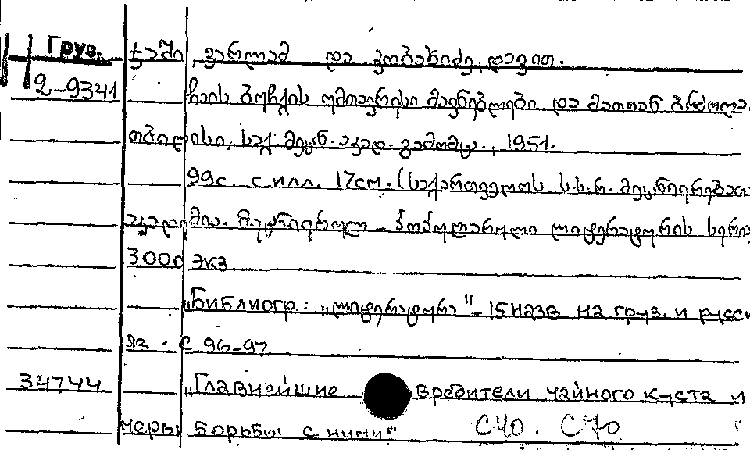 Груз.
ჭაში, ვარლამ და კობახიძე, დავით.
2-9341 ჩაის ბუჩქის უმთავრესი მავნებლები და მათთან ბრძოლა.
თბილისი, საქ. მეცნ. აკად. გამომც., 1951.
99с. с илл. 17см. (საქართველოს ს.ს.რ. მეცნიერებათა
აკადემია. მეცნიერულ-პოპულარული ლიტერატურის სერია
3000 экз
„Библиогр.: „ლიტერატურა"-15 назв на груз. и русск
яз. - с 96-97
34744 „Главнейшие вредители чайного куста и
меры борьбы с ними" С40. С70